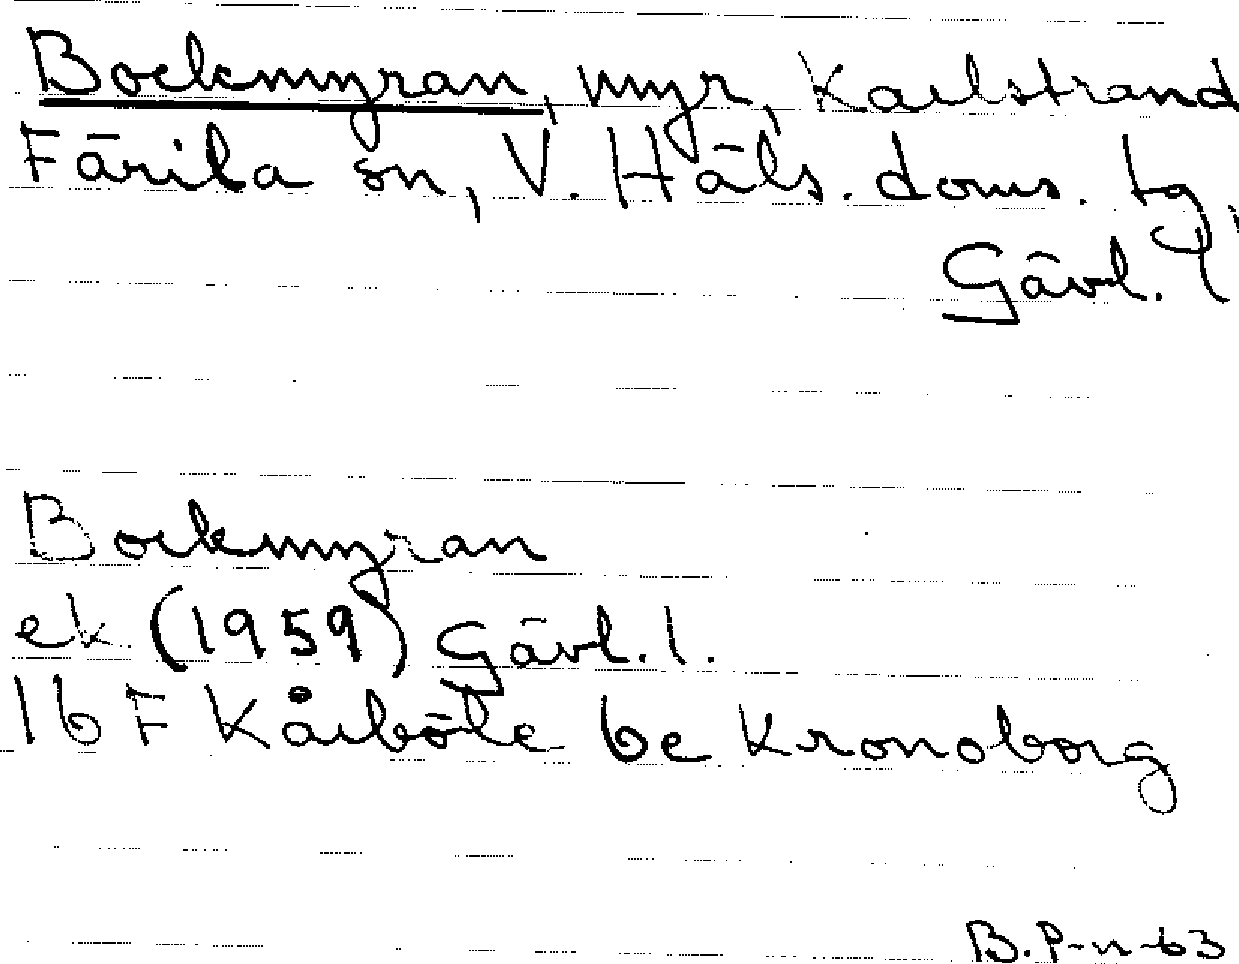 Bockmyran, myr, Karlstrand
Färila sn, V. Häls. doms. tg,
Gävl. l
Bockmyran
ek. (1959) Gävl. l.
16 F Kårböle 6c Kronoborg
B.P-n-63